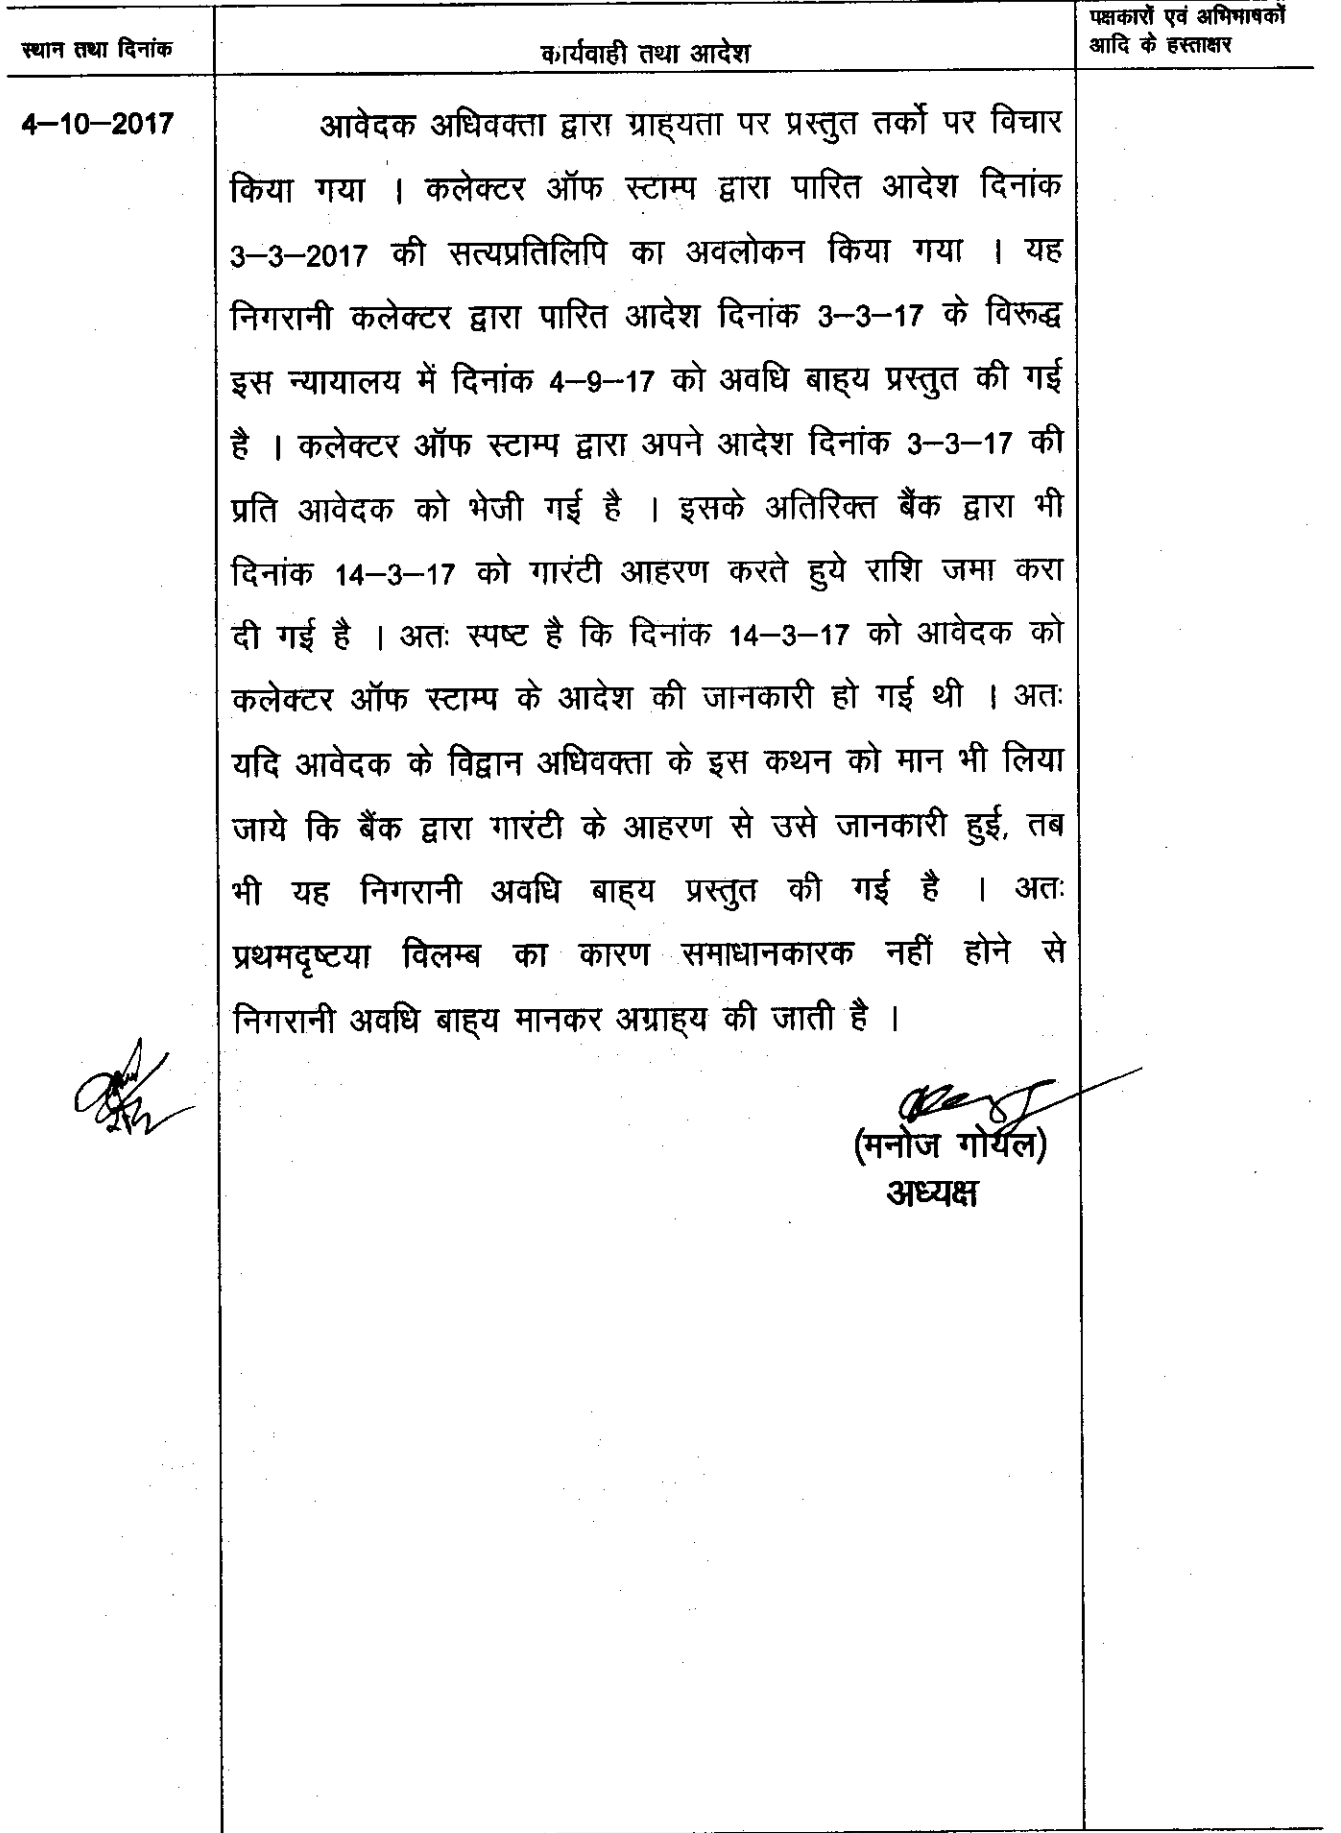 स्थान तथा दिनांक
कार्यवाही तथा आदेश
पक्षकारों एवं अभिभाषकों
आदि के हस्ताक्षर
4–10–2017
आवेदक अधिवक्ता द्वारा ग्राह्यता पर प्रस्तुत तर्को पर विचार
किया गया । कलेक्टर ऑफ स्टाम्प द्वारा पारित आदेश दिनांक
3–3–2017 की सत्यप्रतिलिपि का अवलोकन किया गया । यह
निगरानी कलेक्टर द्वारा पारित आदेश दिनांक 3–3–17 के विरूद्ध
इस न्यायालय में दिनांक 4–9–17 को अवधि बाह्य प्रस्तुत की गई
है । कलेक्टर ऑफ स्टाम्प द्वारा अपने आदेश दिनांक 3–3–17 की
प्रति आवेदक को भेजी गई है । इसके अतिरिक्त बैंक द्वारा भी
दिनांक 14–3–17 को गारंटी आहरण करते हुये राशि जमा करा
दी गई है । अतः स्पष्ट है कि दिनांक 14–3–17 को आवेदक को
कलेक्टर ऑफ स्टाम्प के आदेश की जानकारी हो गई थी । अतः
यदि आवेदक के विद्वान अधिवक्ता के इस कथन को मान भी लिया
जाये कि बैंक द्वारा गारंटी के आहरण से उसे जानकारी हुई, तब
भी यह निगरानी अवधि बाह्य प्रस्तुत की गई है । अतः
प्रथमदृष्टया विलम्ब का कारण समाधानकारक नहीं होने से
निगरानी अवधि बाह्य मानकर अग्राह्य की जाती है ।
(मनोज गोयल)
अध्यक्ष